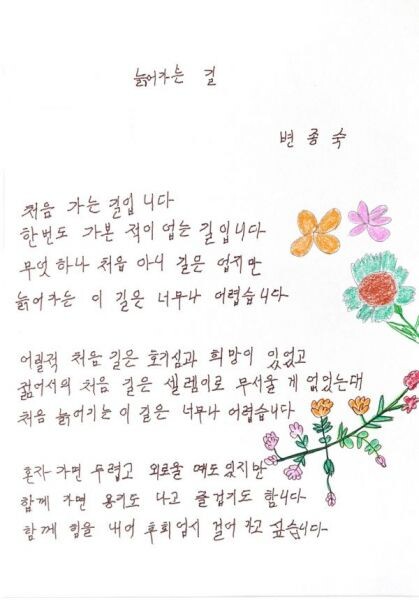 늙어가는 길
변종숙
처음 가는 길입니다
한번도 가본 적이 업는 길입니다
무엇 하나 처음 아니 길은 업지만
늙어가는 이 길은 너무나 어렵습니다
어릴적 처음 길은 호기심과 희망이 있었고
젊어서의 처음 길은 설렘이로 무서울 게 없었는대
처음 늙어기는 이 길은 너무나 어렵습니다
혼자 가면 두렵고 외로울 때도 있지만
함께 가면 용기도 나고 즐겁기도 합니다
함께 힘을 내어 후회업시 걸어가고 싶습니다